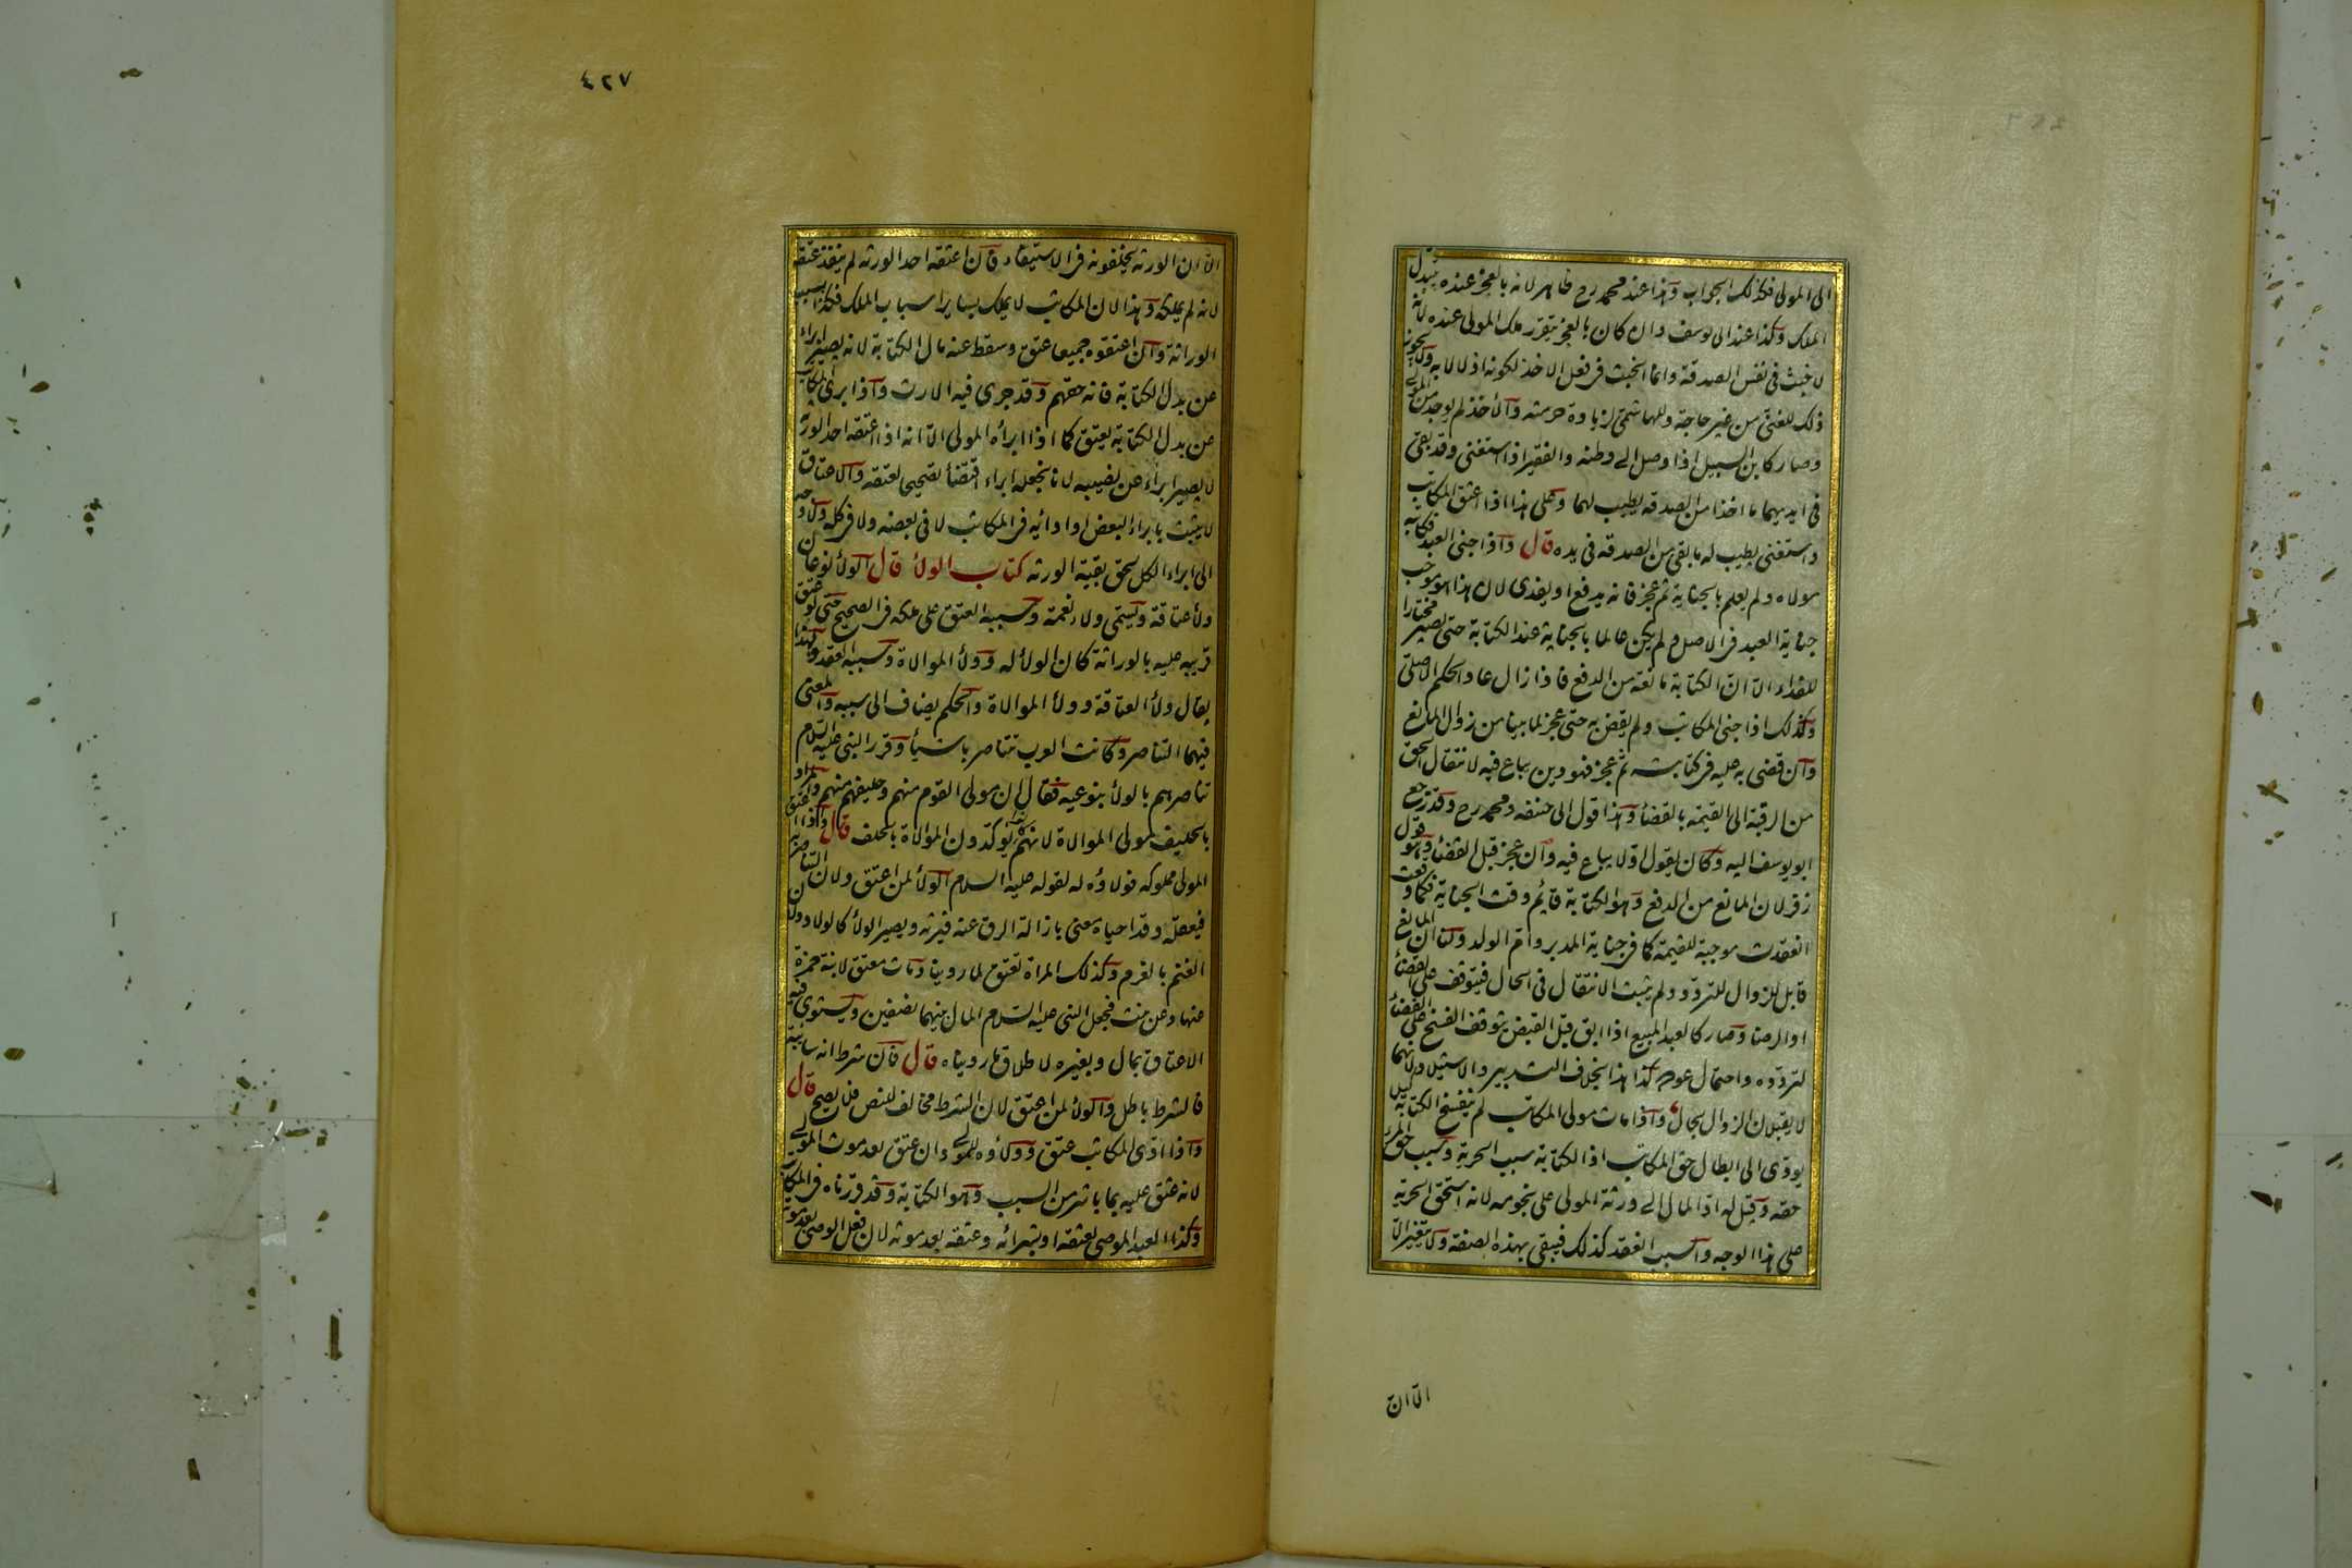 الى المولى فكذلك الجواب وهذا عند محمد رح ظاهر لانه بالعجز عنده يتبدل
الملك وكذا عند ابى يوسف وان كان بالعجز يتقرر ملك المولى عنده لانه
لا خبث فى نفس الصدقة وانما الخبث فى فعل الاخذ لكونه اذلالا به ولا يجوز
ذلك للغنى من غير حاجة وللهاشمى لزيادة حرمته والاخذ لم يوجد من المولى
وصار كابن السبيل اذا وصل الى وطنه والفقير اذا استغنى وقد بقى
فى ايديهما ما اخذا من الصدقة يطيب لهما وعلى هذا اذا اعتق المكاتب
واستغنى يطيب له ما بقى من الصدقة فى يده قال واذا جنى العبد فكاتبه
مولاه ولم يعلم بالجناية ثم عجز فانه يدفع او يفدى لان هذا هو موجب
جناية العبد فى الاصل ولم يكن عالما بالجناية عند الكتابة حتى يصير مختارا
للفداء الا ان الكتابة مانعة من الدفع فاذا زال عاد الحكم الاصلى
وكذلك اذا جنى المكاتب ولم يقض به حتى عجز لما بينا من زوال المانع
وان قضى به عليه فى كتابته ثم عجز فهو دين يباع فيه لانتقال الحق
من الرقبة الى القيمة بالقضاء وهذا قول ابى حنيفه ومحمد رح وقد رجع
ابو يوسف اليه وكان يقول اولا يباع فيه وان عجز قبل القضاء وهو قول
زفر لان المانع من الدفع وهو الكتابة قايم وقت الجناية فكما وقعت
انعقدت موجبة للقيمة كما فى جناية المدبر وام الولد ولنا ان المانع
قابل للزوال للتردد ولم يثبت الانتقال فى الحال فيتوقف على القضاء
او الرضا وصار كالعبد المبيع اذا ابق قبل القبض يتوقف الفسخ على القضاء
لتردده واحتمال عوده كذا هذا بخلاف التدبير والاستيلاد لانهما
لا يقبلان الزوال بحال واذا مات مولى المكاتب لم ينفسخ الكتابة كيلا
يودى الى ابطال حق المكاتب اذ الكتابة سبب الحرية وسبب حق المرء
حقه وقيل له اد المال الى ورثة المولى على نجومه لانه استحق الحرية
على هذا الوجه والسبب انعقد كذلك فيبقى بهذه الصفة ولا يتغير الا
الا ان
٤٢٧
الا ان الورثه يخلفونه فى الاستيفاء فان اعتقه احد الورثه لم ينفذ عتقه
لانه لم يملكه وهذا لان المكاتب لا يملك بساير اسباب الملك فكذا بسبب
الوراثة وان اعتقوه جميعا عتق وسقط عنه مال الكتابة لانه يصير ابراء
عن بدل الكتابة فانه حقهم وقد جرى فيه الارث واذا برى المكاتب
عن بدل الكتابة يعتق كما اذا ابرأه المولى الا انه اذا اعتقه احد الورثة
لا يصير ابراء عن نصيبه لانا نجعله ابراء اقتضأ تصحيحا لعتقه والاعتاق
لا يثبت بابراء البعض او ادائه فى المكاتب لا فى بعضه ولا فى كله ولا وجه
الى ابراء الكل لحق بقية الورثه كتاب الولأ قال الولأ نوعان
ولأ عتاقة ويسمى ولاء نعمة وسببه العتق على ملكه فى الصحيح حتى لو عتق
قريبه عليه بالوراثة كان الولأ له وولأ الموالاة وسببه العقد ولهذا
يقال ولأ العتاقة وولأ الموالاة والحكم يضاف الى سببه والمعنى
فيهما التناصر وكانت العرب تتناصر باشيأ وقرر النبى عليه السلام
تناصرهم بالولأ بنوعيه فقال ان مولى القوم منهم وحليفهم منهم والمراد
بالحليف مولى الموالاة لانهم كانوا يؤكدون الموالاة بالحلف قال واذا اعتق
المولى مملوكه فولاؤه له لقوله عليه السلام الولأ لمن اعتق ولان التناصر
فيعقله وقد احياه معنى بازالة الرق عنه فيرثه ويصير الولأ كالولاد ولان
الغنم بالغرم وكذلك المراة تعتق لما روينا ومات معتق لابنة حمزة
عنها وعن بنت فجعل النبى عليه السلام المال بينهما نصفين ويستوى فيه
الاعتاق بمال وبغيره لاطلاق ما رويناه قال فان شرط انه سايبة
فالشرط باطل والولأ لمن اعتق لان الشرط مخالف للنص فلا يصح قال
واذا ادى المكاتب عتق وولأوه للمولى وان عتق بعد موت المولى
لانه عتق عليه بما باشر من السبب وهو الكتابة وقد قررناه فى المكاتب
وكذا العبد الموصى بعتقه او بشرائه وعتقه بعد موته لان فعل الوصى بعد موته